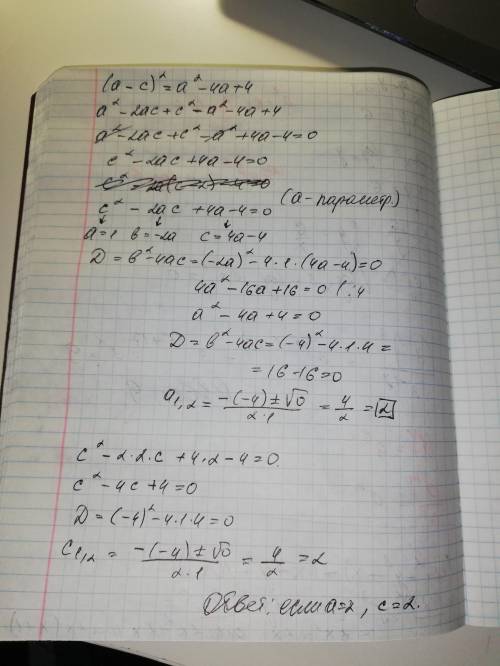 (a-c)² = a² - 4a + 4
a² - 2ac + c² = a² - 4a + 4
a² - 2ac + c² - a² + 4a - 4 = 0
c² - 2ac + 4a - 4 = 0
c² - 2ac + 4a - 4 = 0 (a - параметр.)
a = 1 в = -2a c = 4a - 4
D = в² - 4ac = (-2a)² - 4·1·(4a - 4) = 0
4a² - 16a + 16 = 0 | : 4
a² - 4a + 4 = 0
D = в² - 4ac = (-4)² - 4·1·4 =
= 16 - 16 = 0
a₁,₂ = (-(-4) ± √0)/(2·1) = 4/2 = 2
c² - 2·2·c + 4·2 - 4 = 0
c² - 4c + 4 = 0
D = (-4)² - 4·1·4 = 0
c₁,₂ = (-(-4) ± √0)/(2·1) = 4/2 = 2
Ответ: если a = 2, c = 2.